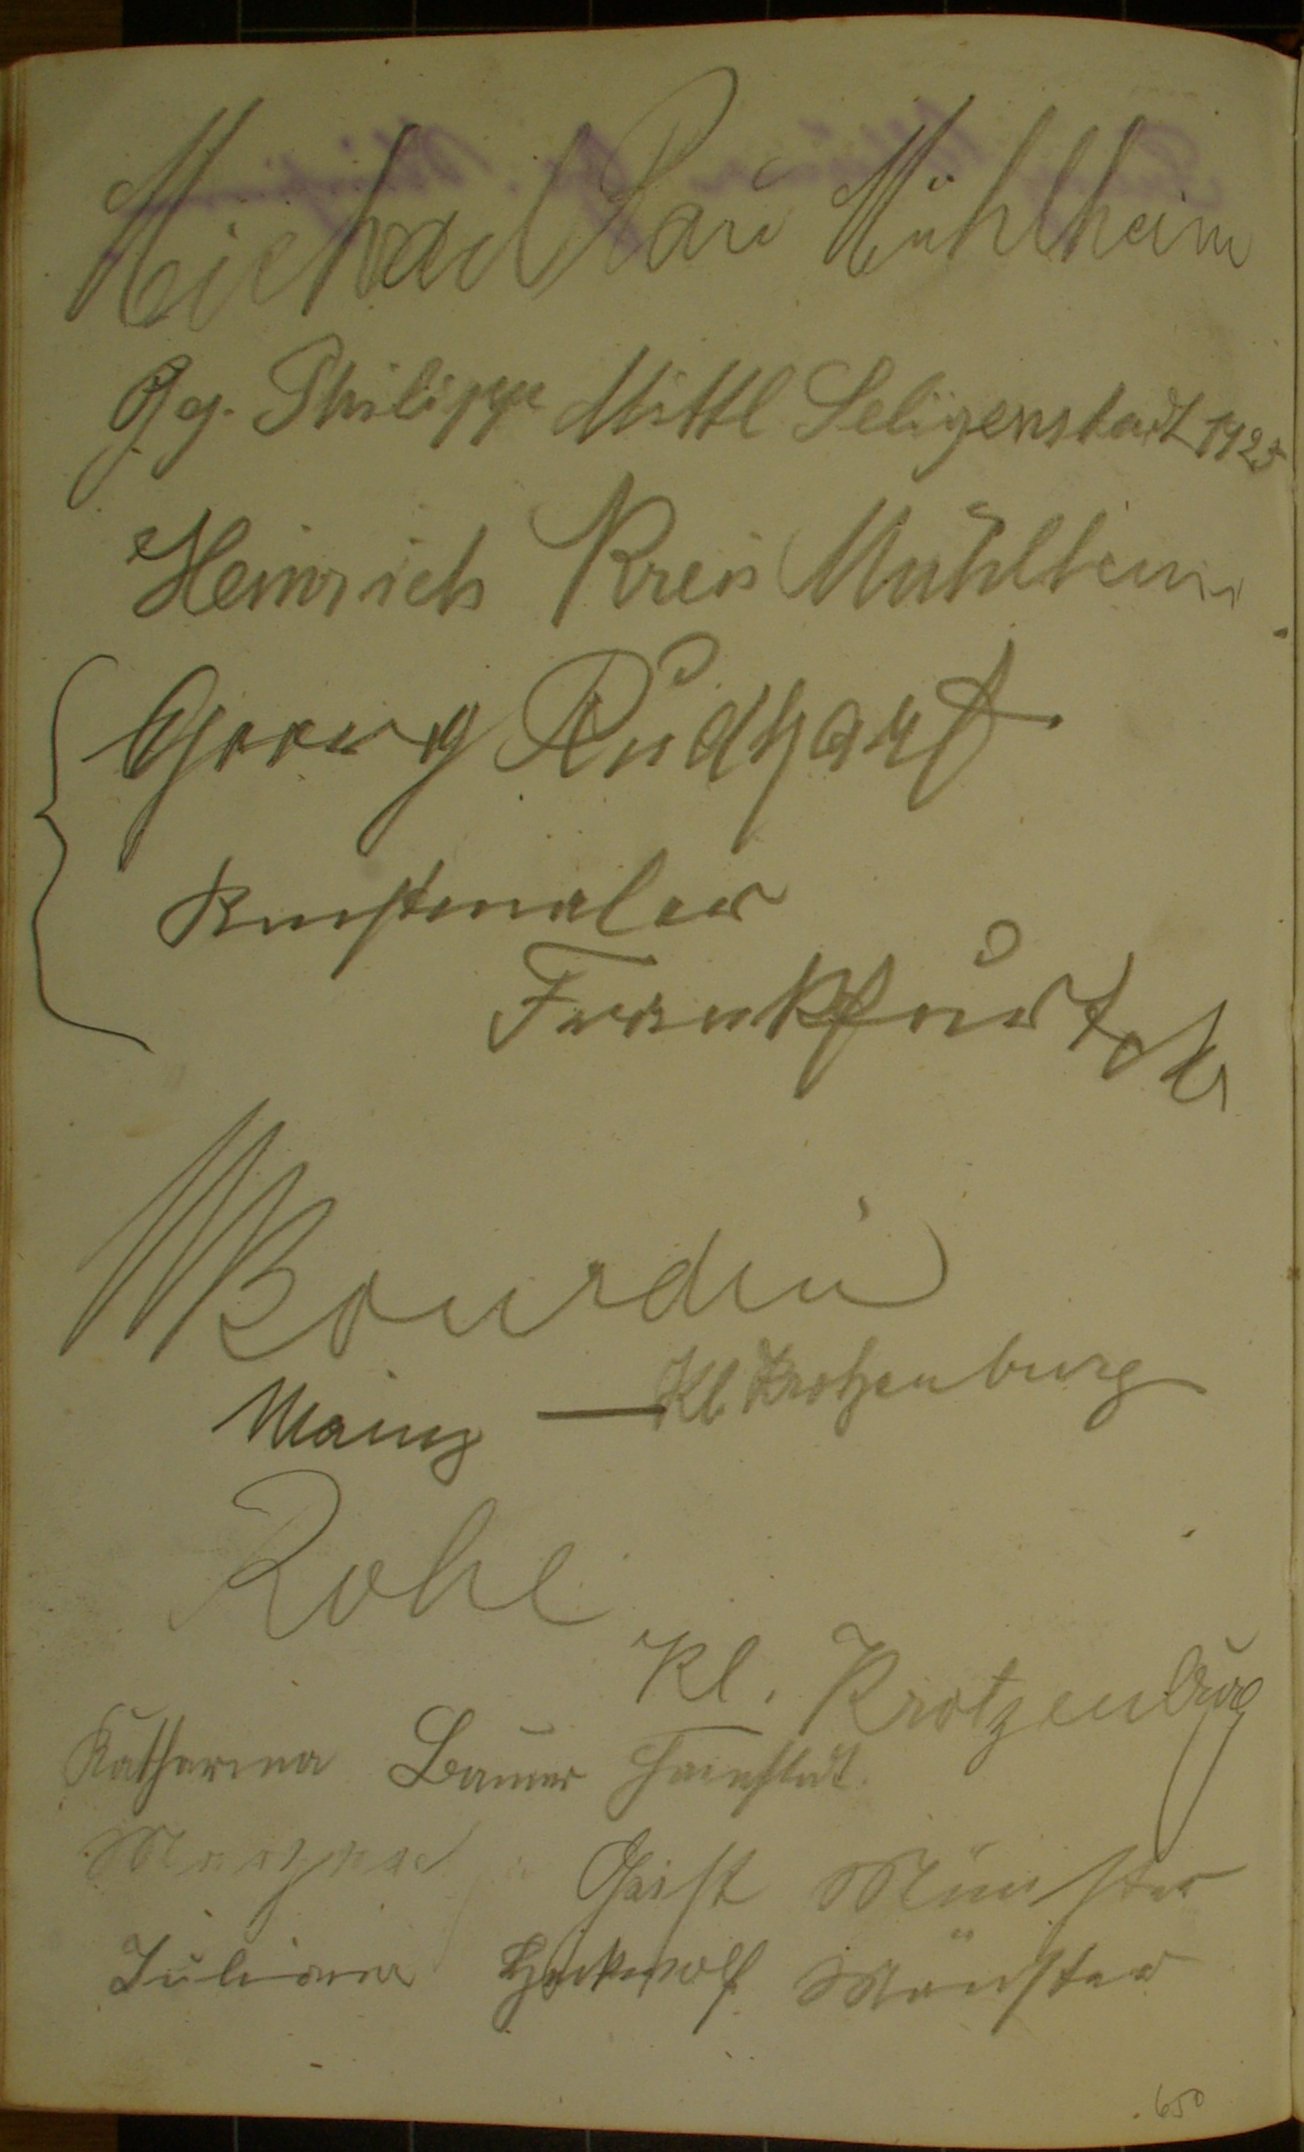 Michael Rau Mühlheim
Gg. Philipp Mittl Seligenstadt 1925
Heinrich Kreis Mühlheim
Georg Rüdhart
Kunstmaler
Frankfurt M
Bourdin
Mainz — Kl. Krotzenburg
Rohe
Kl. Krotzenburg
Katharina Bauer Hainstadt
Geist Münster
Juliana Münster
650